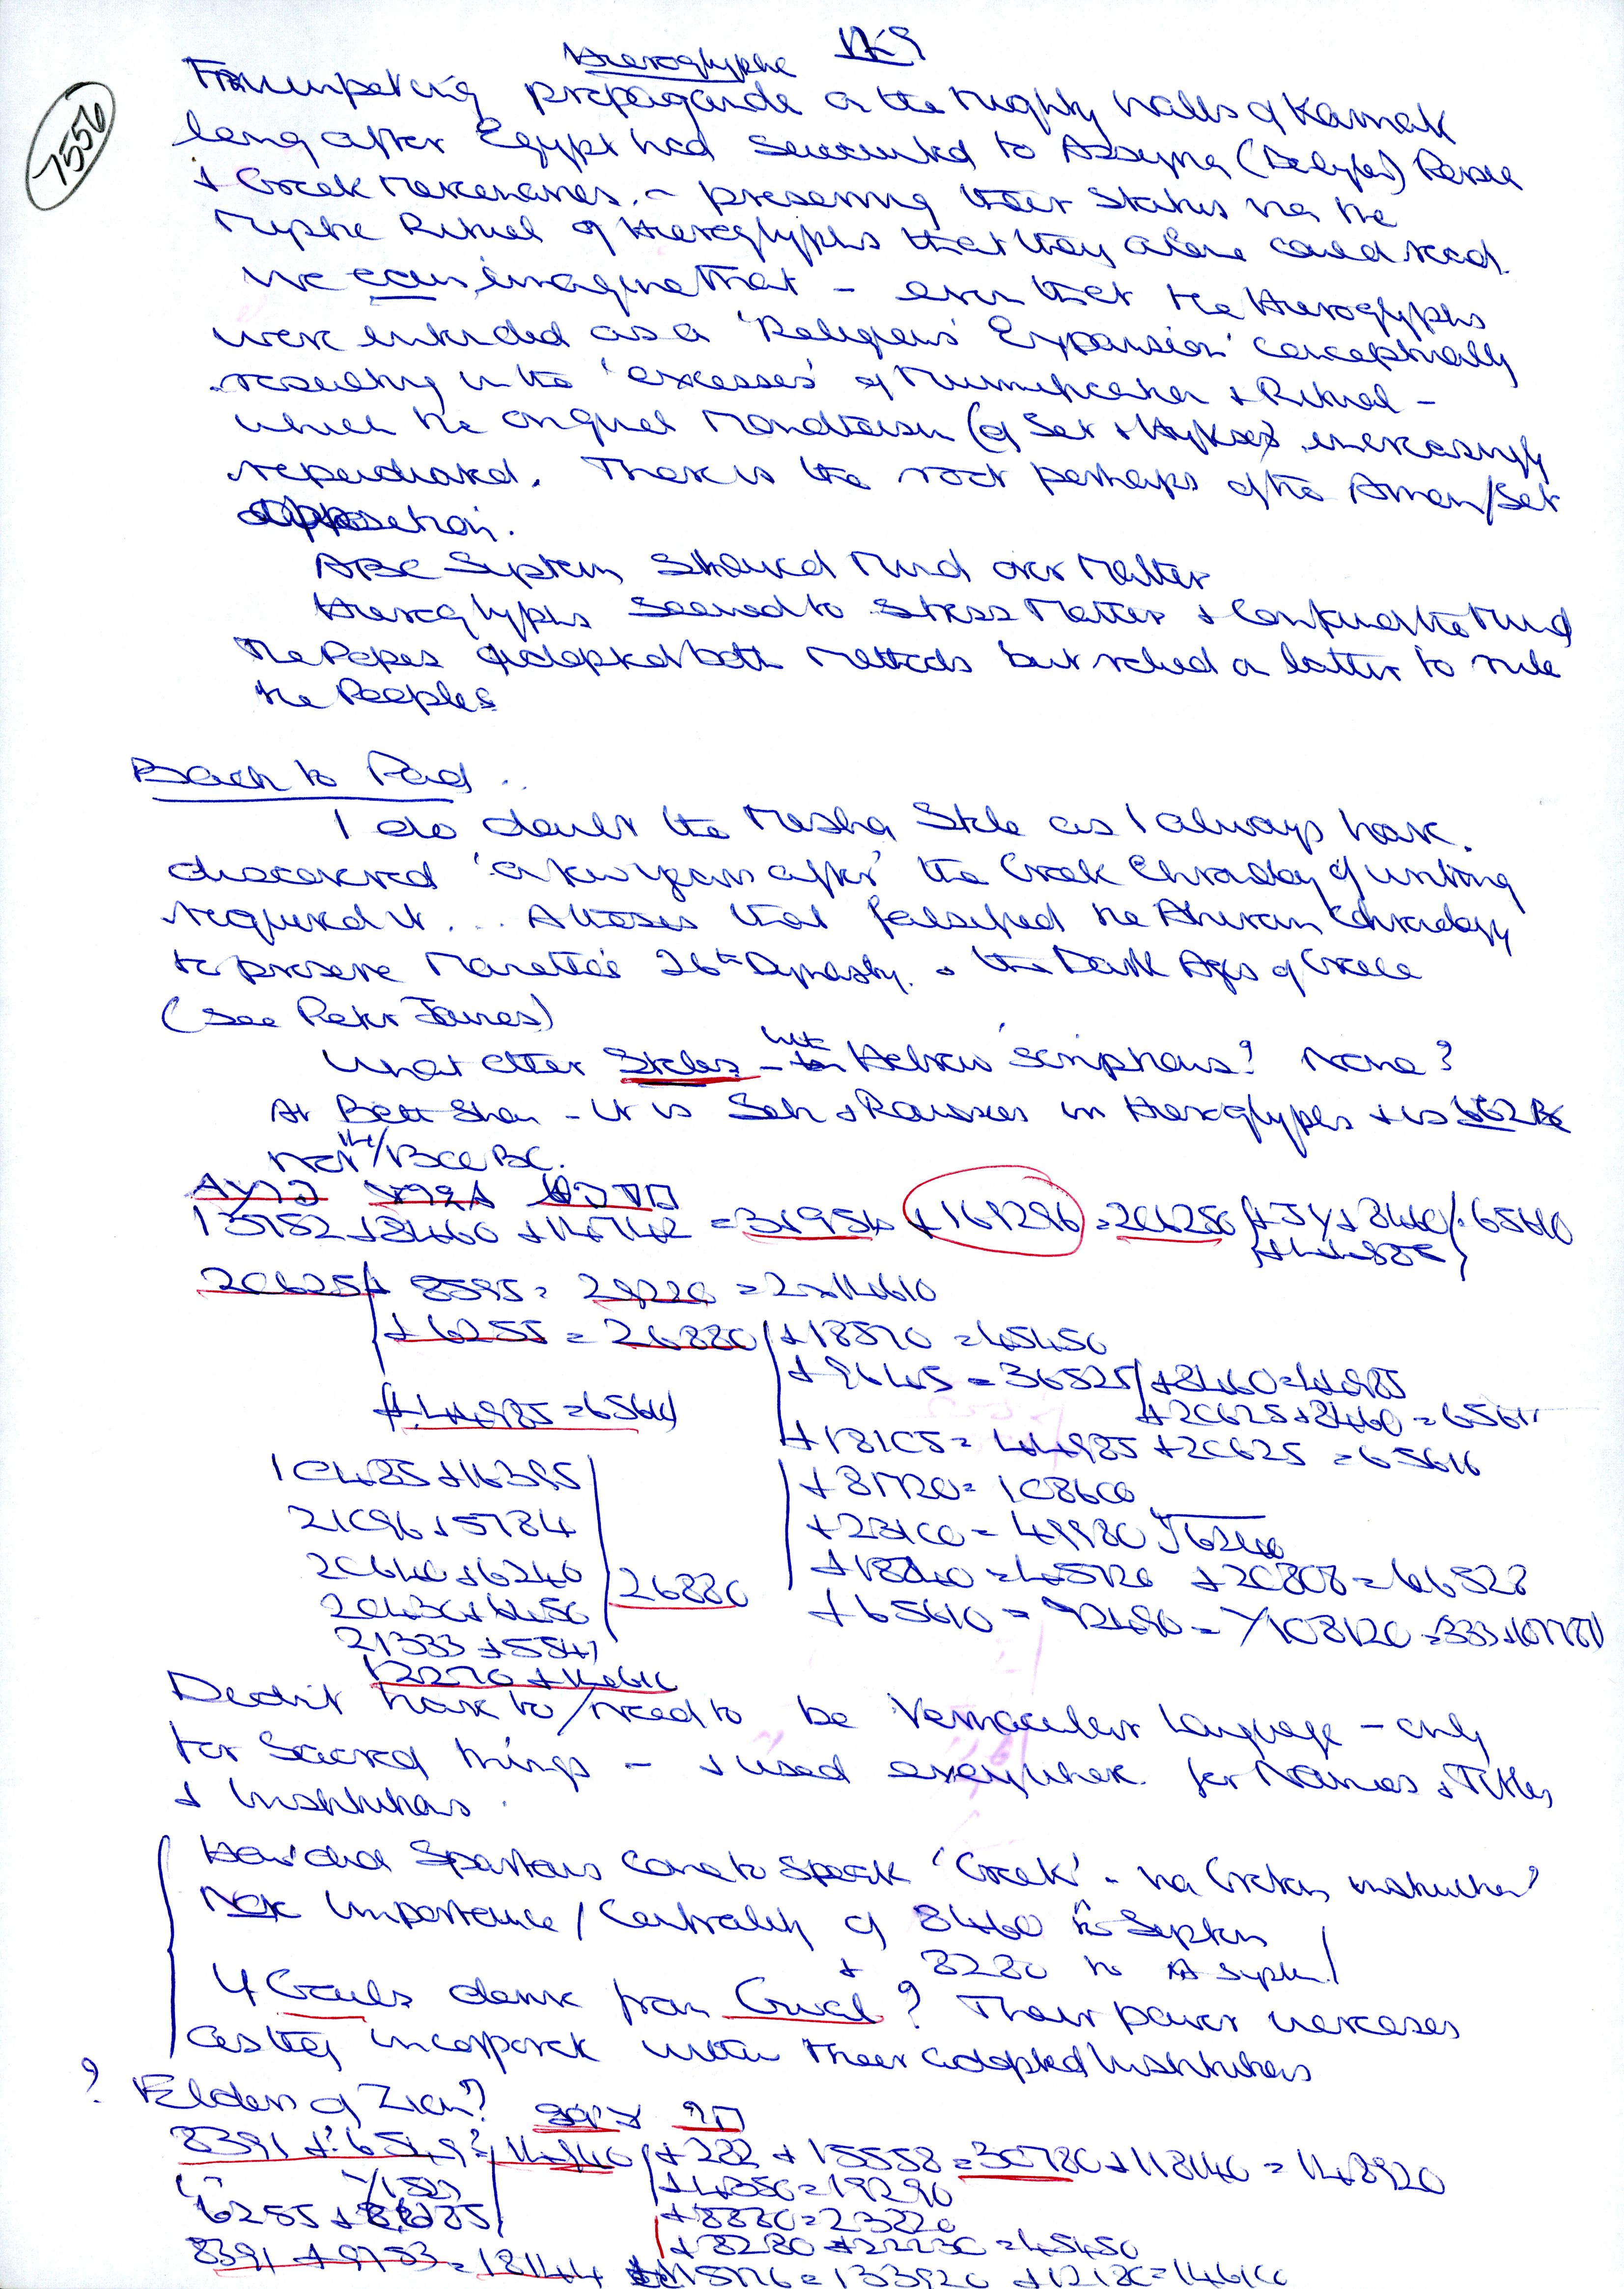 7556
Hieroglyphe 129
Trumpeting propaganda on the mighty walls of Karnak
long after Egypt had succumbed to Assyria (Delyfed) Persia
+ Greek Mercenaries. - preserving their Status via the
Mystic Ritual of Hieroglyphs that they alone could read.
We can imagine that - even that the Hieroglyphs
were intended as a 'Religious' Expansion' conceptually
resulting in the 'excesses' of Mummification + Ritual -
which the original Monotheism (of Set + Hyksos) increasingly
repudiated. There is the root perhaps of the Amen/Set
opposition.
ABC System Showed Mind over Matter
Hieroglyphs seemed to stress Matter + Confused the Mind
The Popes adopted both methods but relied on latter to rule
the Peoples
Back to Pad.
I do doubt the Mesha Stele as I always have.
discovered 'a few years after' the Greek Chronology of writing
required it... A thesis that falsified the Ahiram Chronology
to preserve Manetho's 26th Dynasty. + the Dark Ages of Greece
(see Peter James)
What other Steles - with Hebrew scriptions? None?
At Beth Shan - it is Seti + Ramses in Hieroglyphs + is 662 BC
not 14/1300 BC.
13752 + 8460 + 14742 = 36954 + 169296 = 206250
20625 + 8595 = 29220 = 2x14610
+ 6255 = 26880 + 18570 = 45450
+ 9645 = 36525 + 8460 = 44985
(+ 44985 = 65610) + 20625 + 8460 = 65610
+ 18105 = 44985 + 20625 = 65610
10485 + 16395 + 81720 = 108600
21096 + 5784 + 23100 = 49980
20640 + 6240 26880 + 18240 = 45120 + 20808 = 66528
20430 + 6450 + 65610 = 92490 = 108120
21333 + 5547
12270 + 14610
Doesn't have to/need to be Vernacular Language - only
for Sacred things - + used everywhere for Names + Titles
+ Institutions.
How did Spartans come to speak 'Greek' - via Cretan institution?
Note Importance/Centrality of 8460 to System
+ 8280 to A System
4 Gauls derive from Gwal? Their power increases
as they incorporate within their adopted Institutions
? Elders of Zion?
8391 + 6549? 14940 + 282 + 15558 = 30780 + 118140 = 148920
+ 4350 = 19290
6255 + 8685 + 8880 = 23820
+ 8280 + 22230 = 45450
8391 + 9753 = 18144 + 115776 = 133920 + 12180 = 146100